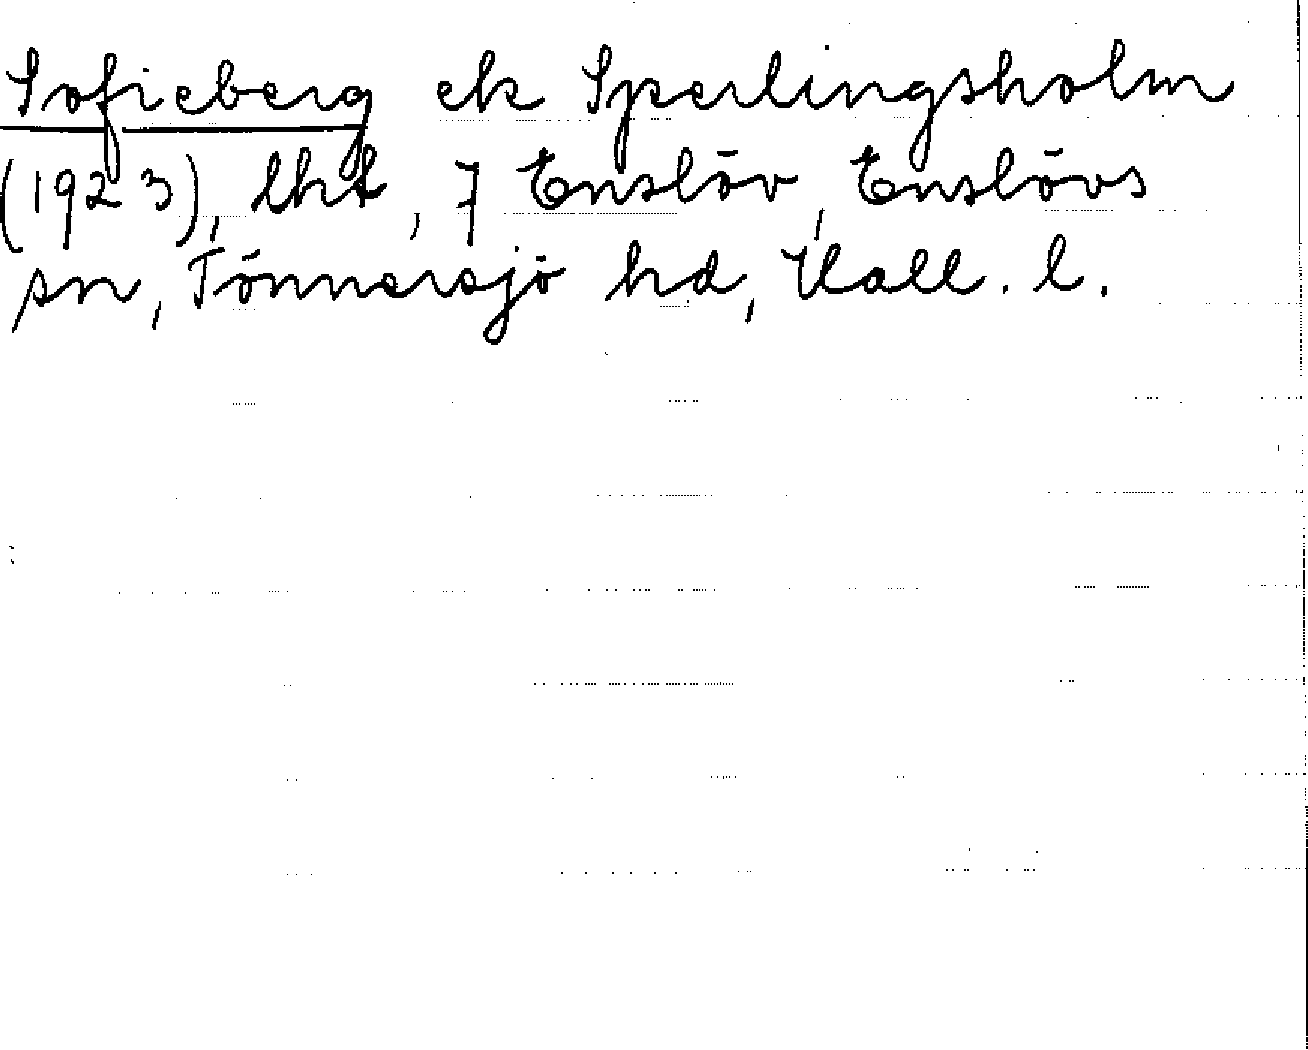 Sofieberg ek Sperlingsholm
(1923), lht, 7 Enslöv, Enslövs
sn, Tönnersjö hd, Hall. l.